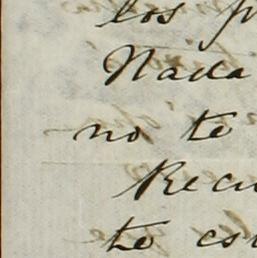 los p
Nada
no te
Recu
te es